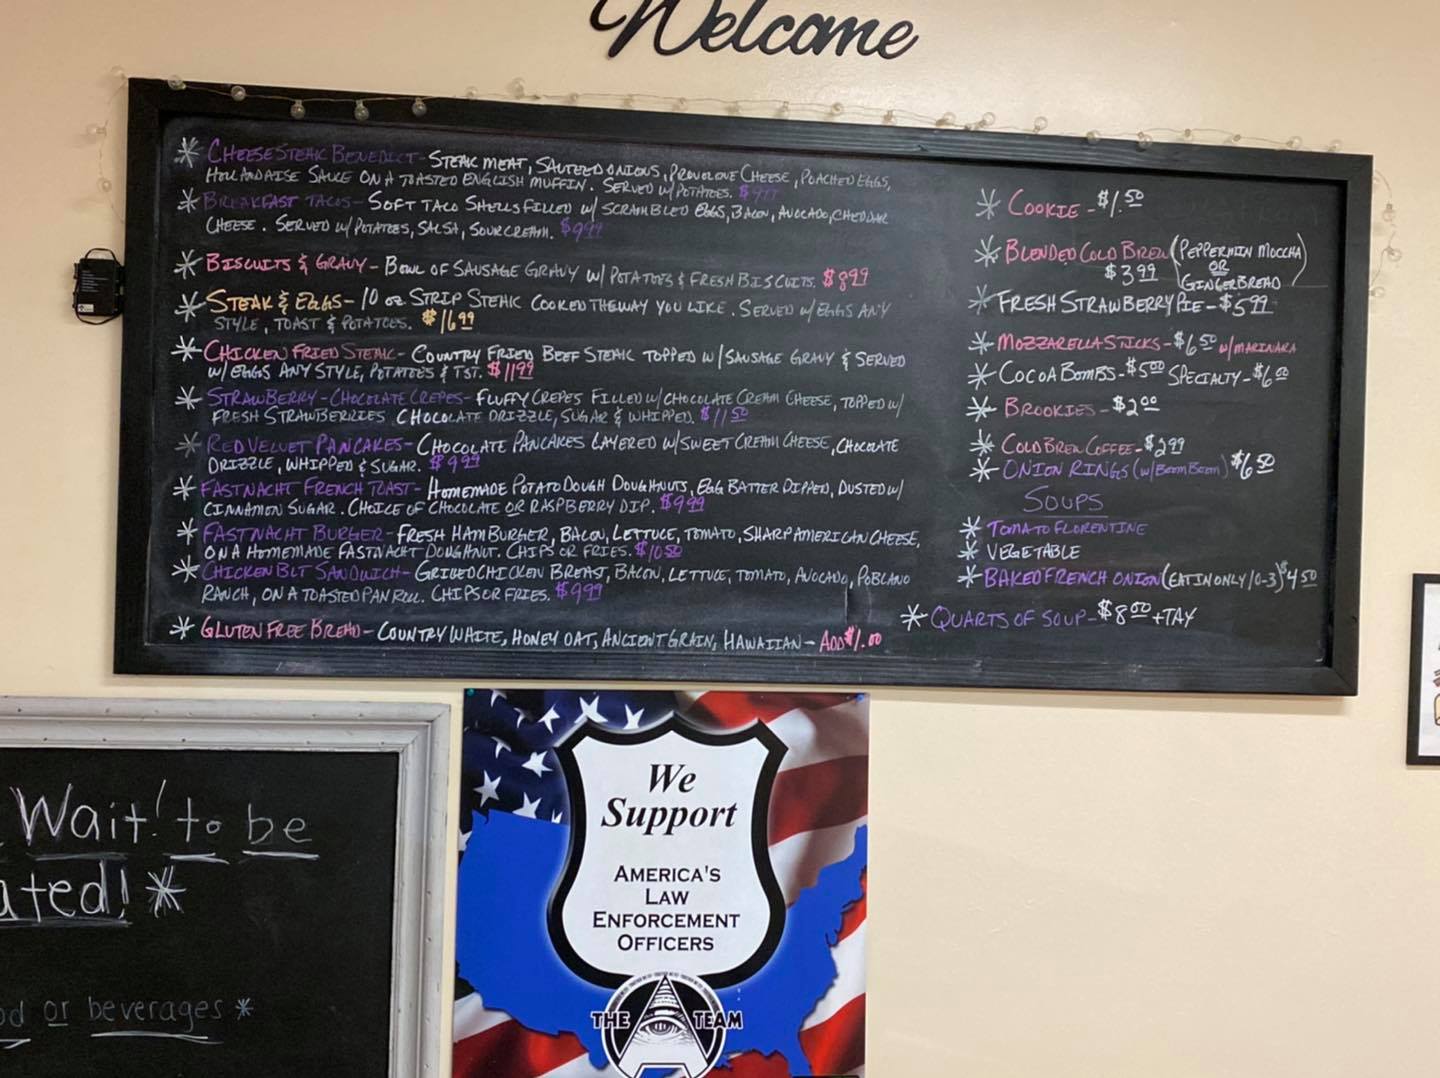 Welcome
* CHEESESTEAK BENEDICT - STEAK MEAT, SAUTEED ONIONS, PROVOLONE CHEESE, POACHED EGGS,
HOLLANDAISE SAUCE ON A TOASTED ENGLISH MUFFIN. SERVED W/ POTATOES. $9.99
* BREAKFAST TACOS - SOFT TACO SHELLS FILLED W/ SCRAMBLED EGGS, BACON, AVOCADO, CHEDDAR
CHEESE. SERVED W/ POTATOES, SALSA, SOUR CREAM. $9.99
* BISCUITS & GRAVY - BOWL OF SAUSAGE GRAVY W/ POTATOES & FRESH BISCUITS. $8.99
* STEAK & EGGS - 10 OZ STRIP STEAK COOKED THE WAY YOU LIKE. SERVED W/ EGGS ANY
STYLE, TOAST & POTATOES. $16.99
* CHICKEN FRIED STEAK - COUNTRY FRIED BEEF STEAK TOPPED W/ SAUSAGE GRAVY & SERVED
W/ EGGS ANY STYLE, POTATOES & TST. $11.99
* STRAWBERRY - CHOCOLATE CREPES - FLUFFY CREPES FILLED W/ CHOCOLATE CREAM CHEESE, TOPPED W/
FRESH STRAWBERRIES CHOCOLATE DRIZZLE, SUGAR & WHIPPED. $11.50
* RED VELVET PANCAKES - CHOCOLATE PANCAKES LAYERED W/ SWEET CREAM CHEESE, CHOCOLATE
DRIZZLE, WHIPPED & SUGAR. $9.99
* FASTNACHT FRENCH TOAST - HOMEMADE POTATO DOUGH DOUGHNUTS, EGG BATTER DIPPED, DUSTED W/
CINNAMON SUGAR. CHOICE OF CHOCOLATE OR RASPBERRY DIP. $9.99
* FASTNACHT BURGER - FRESH HAMBURGER, BACON, LETTUCE, TOMATO, SHARP AMERICAN CHEESE,
ON A HOMEMADE FASTNACHT DOUGHNUT. CHIPS OR FRIES. $10.50
* CHICKEN BLT SANDWICH - GRILLED CHICKEN BREAST, BACON, LETTUCE, TOMATO, AVOCADO, POBLANO
RANCH, ON A TOASTED PAN ROLL. CHIPS OR FRIES. $9.99
* GLUTEN FREE BREAD - COUNTRY WHITE, HONEY OAT, ANCIENT GRAIN, HAWAIIAN - ADD $1.00
* COOKIE - $1.50
* BLENDED COLD BREW (PEPPERMIN MOCCHA
OR
GINGERBREAD)
$3.99
* FRESH STRAWBERRY PIE - $5.99
* MOZZARELLA STICKS - $6.50 W/ MARINARA
* COCOA BOMBS - $5.00 SPECIALTY - $6.00
* BROOKIES - $2.00
* COLD BREW COFFEE - $2.99
* ONION RINGS (W/ BOOM BOOM) $6.50
SOUPS
* TOMATO FLORENTINE
* VEGETABLE
* BAKED FRENCH ONION (EAT IN ONLY 10-3) $4.50
* QUARTS OF SOUP - $8.00 + TAX
Wait! to be
ated! *
or beverages *
We
Support
AMERICA'S
LAW
ENFORCEMENT
OFFICERS
THE TEAM